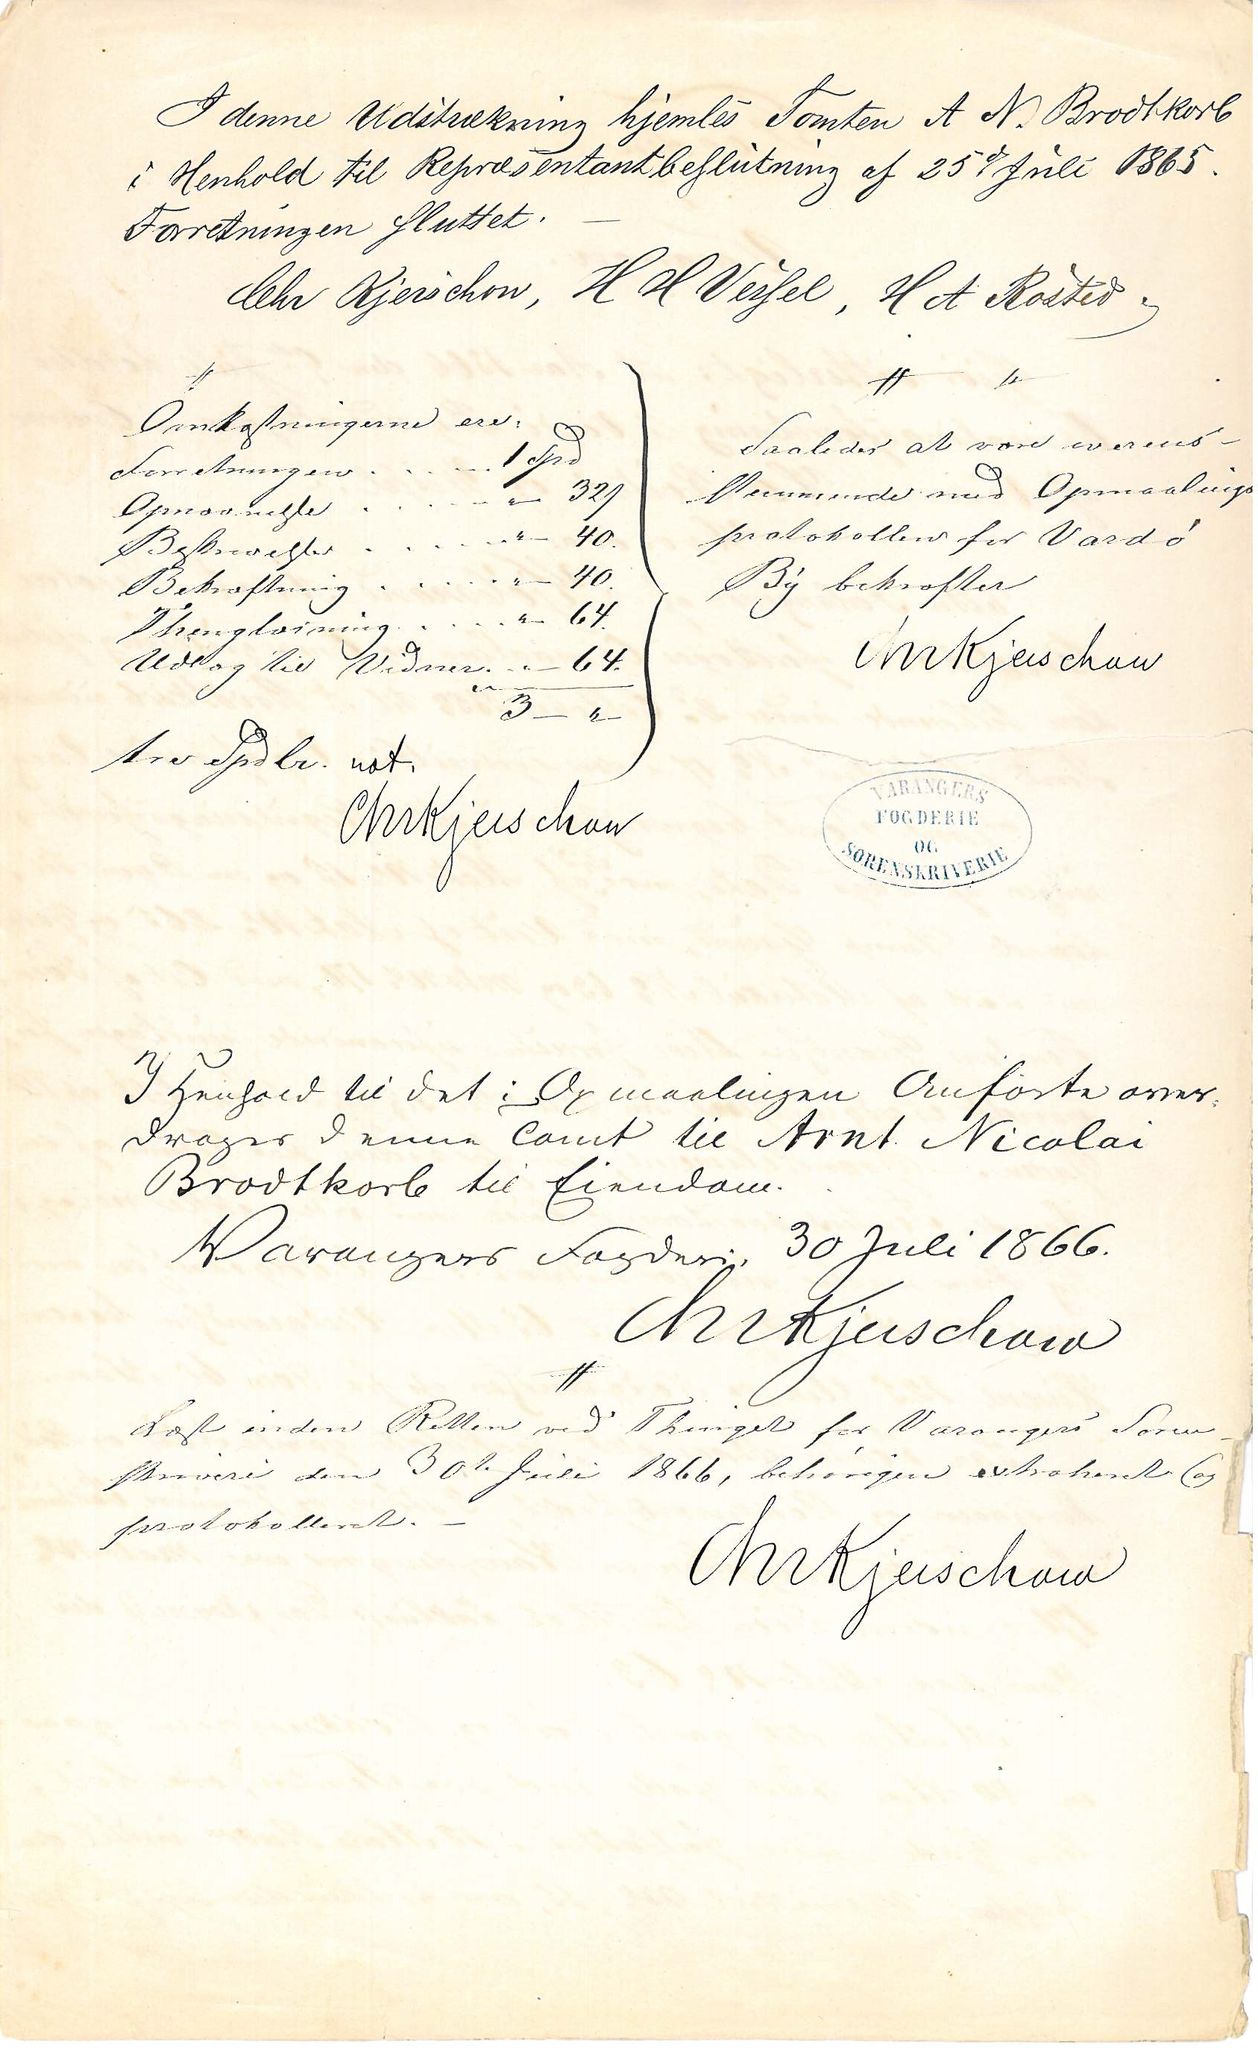 I denne Udstrækning hjemles Tomten A N. Brodtkorb
i Henhold til Repræsentantbeslutning af 25d Juli 1865.
Forretningen sluttet. —
Chr Kjerschow, H H Vessel, H A Rosted
Omkostningerne ere:
Forretningen . . . . 1 Spd
. . . . „ 32
Beskrivelse . . . . „ 40.
Bekræftning . . . . „ 40.
Thinglæsning . . . . „ 64.
Udlag til Vidner. „ 64.
3 — „
tre Spdlr. not.
ChrKjerschow
Saaledes at være overens-
stemmende med Opmaalings
protokollen for Vardø
By bekræfter
ChrKjerschow
VARANGERS
FOGDERIE
OG
SORENSKRIVERIE
I Henhold til det i Opmaalingen Anførte over-
drages denne Tomt til Arnt Nicolai
Brodtkorb til Eiendom.
Varangers Fogderi, 30 Juli 1866.
ChrKjerschow
Læst inden Retten ved Thinget for Varangers Soren-
skriveri den 30te Juli 1866, behørigen extraheret og
protokolleret. —
ChrKjerschow